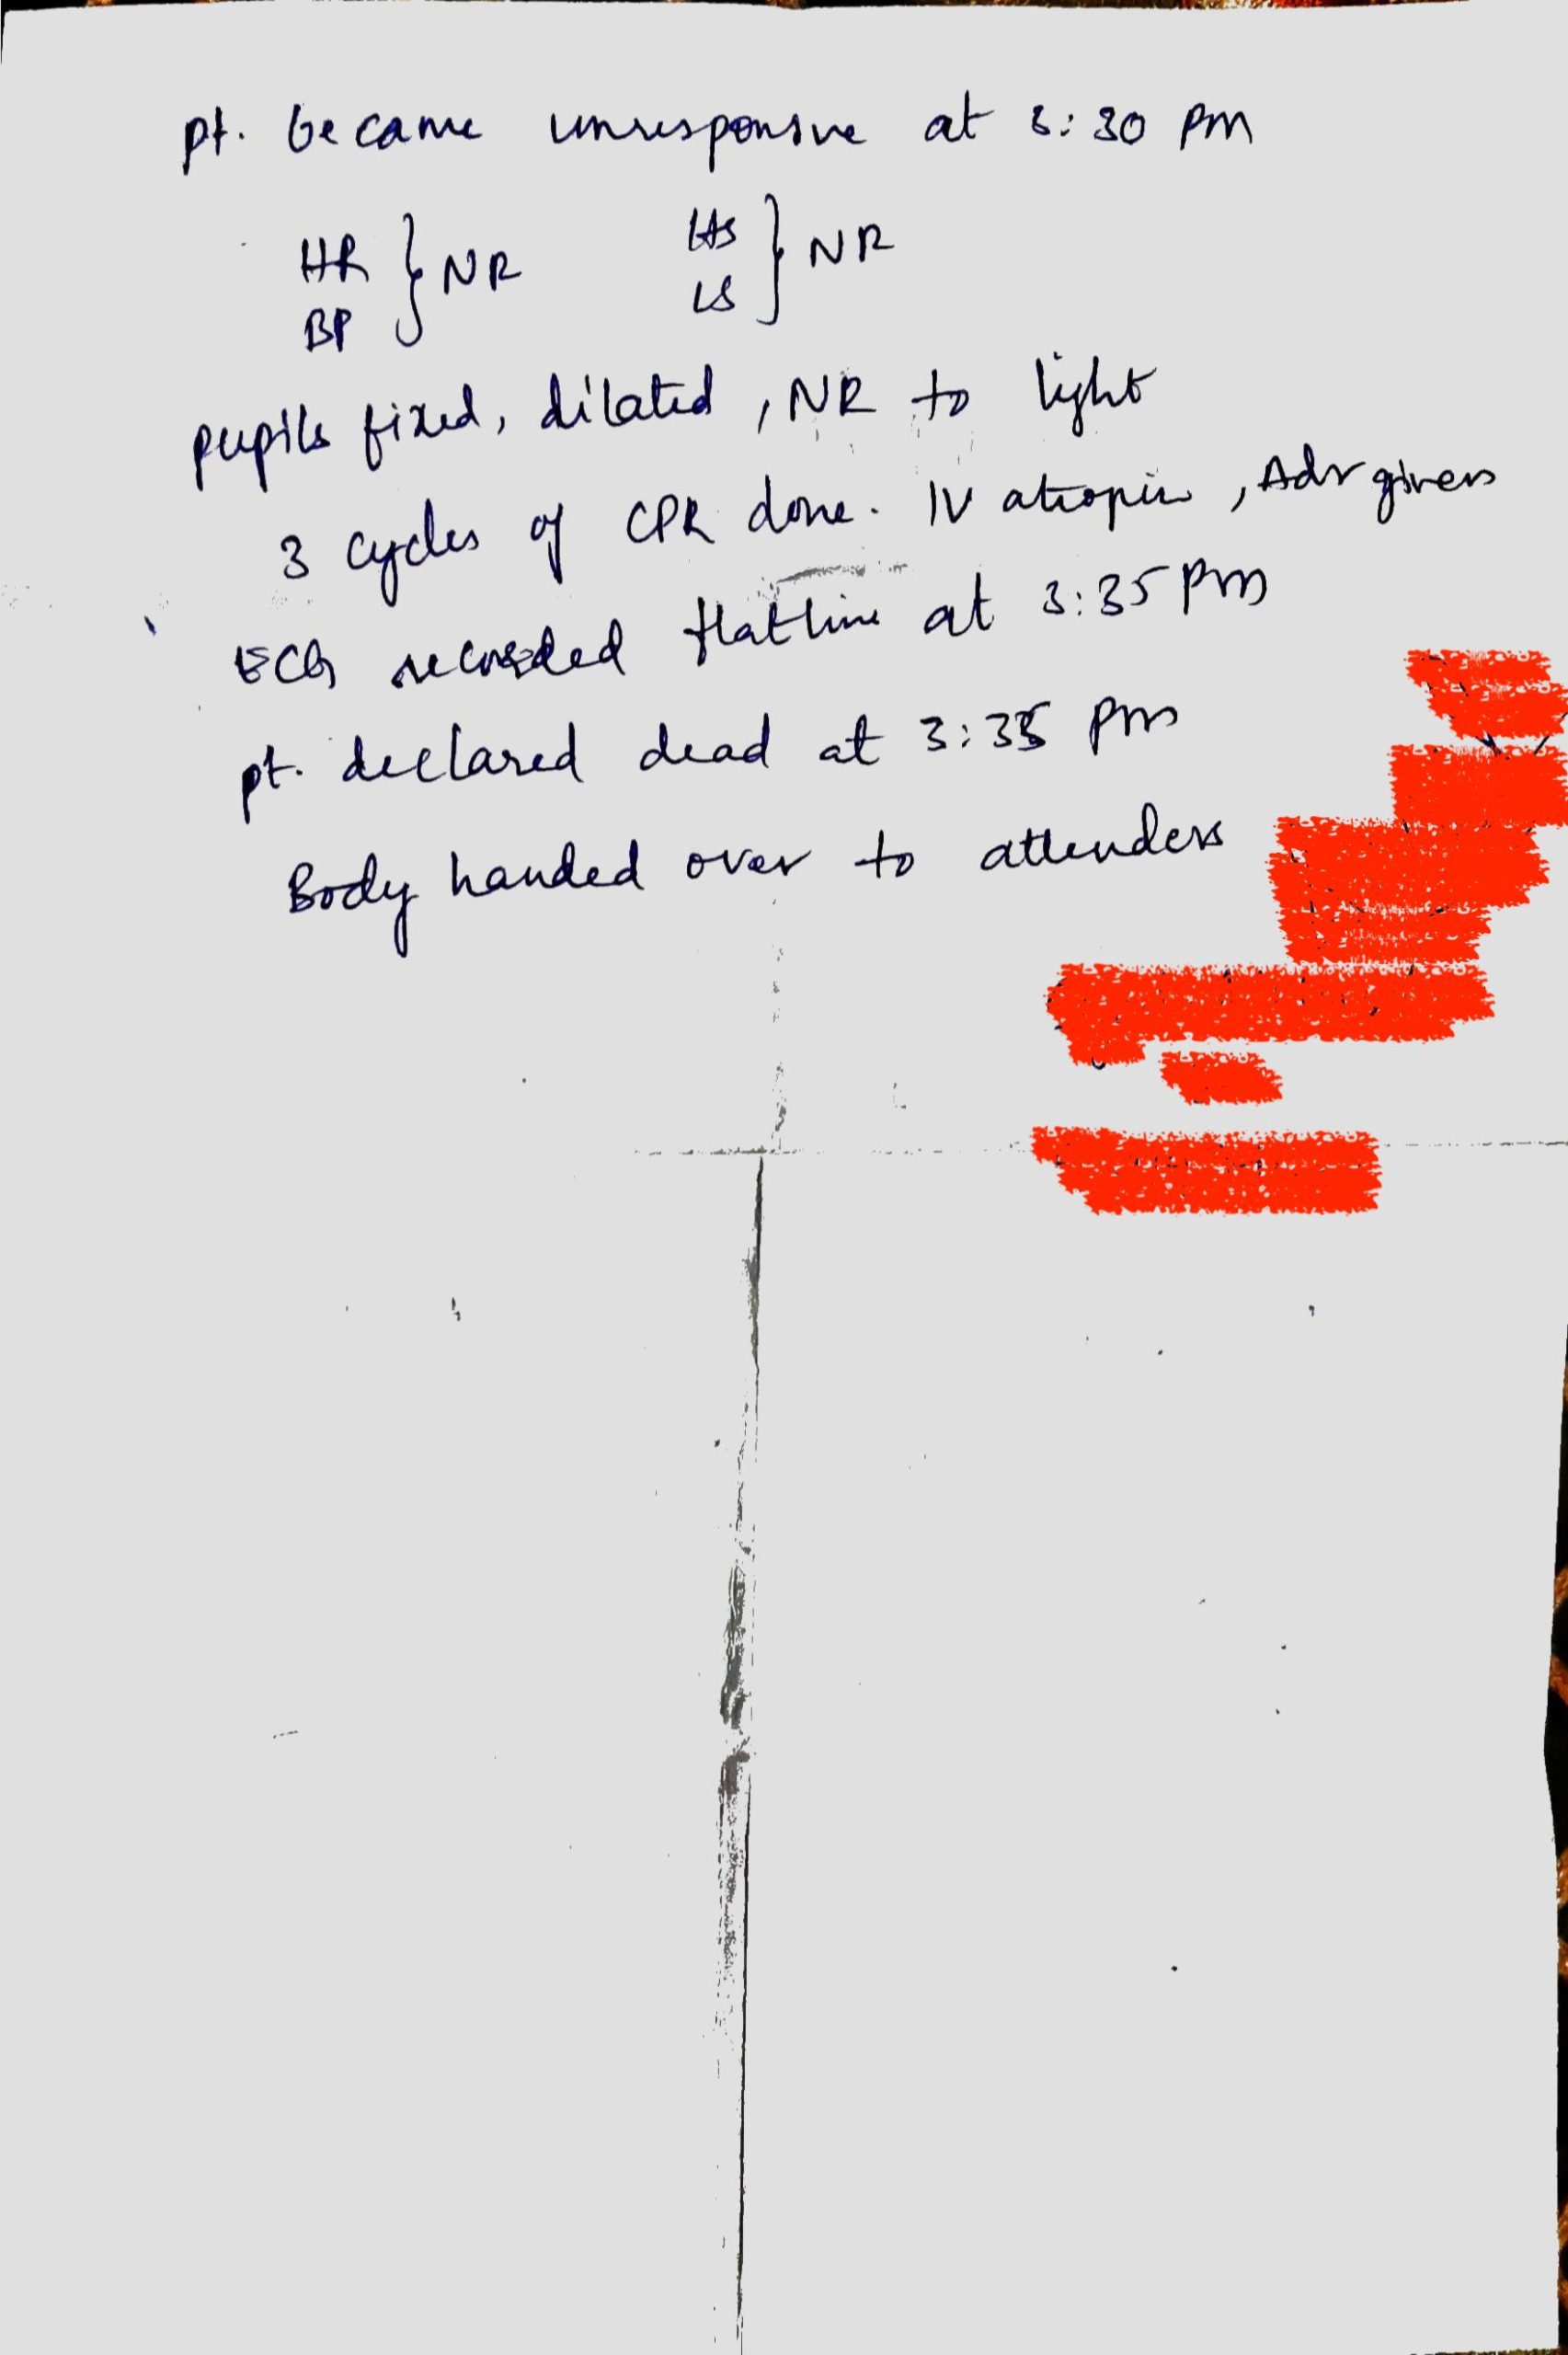 pt. became unresponsive at 3:30 pm
HR } NR HS } NR
BP LS
pupils fixed, dilated, NR to light
3 cycles of CPR done. IV atropin, Adr given
ECG recorded flatline at 3:35 pm
pt. declared dead at 3:35 pm
Body handed over to attenders